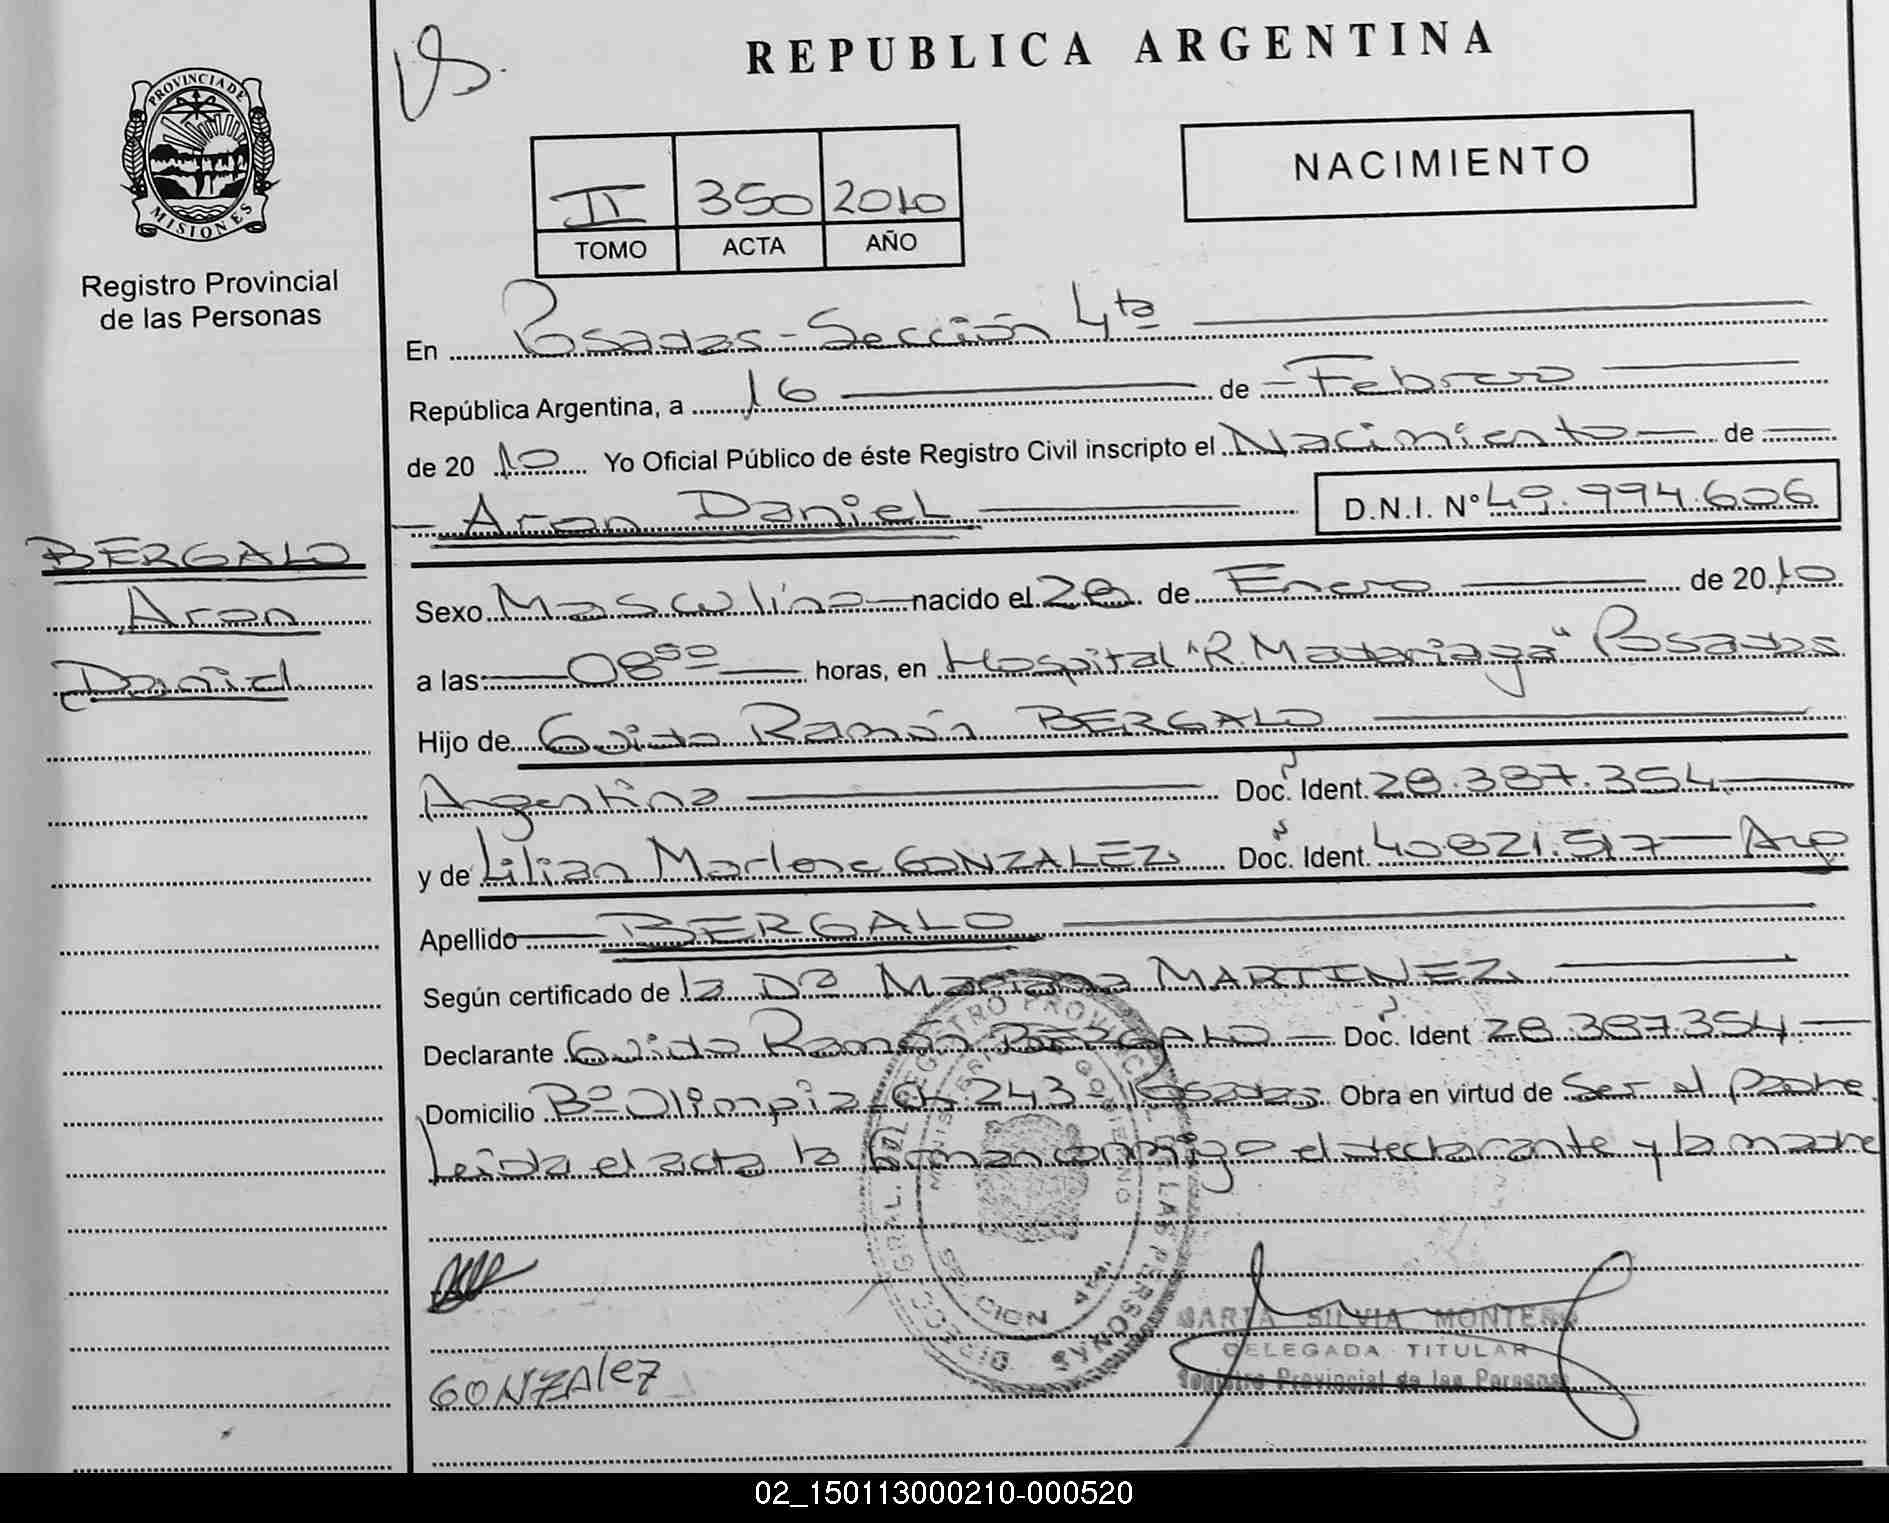 REPUBLICA ARGENTINA
PROVINCIA DE
MISIONES
Registro Provincial
de las Personas
NACIMIENTO
II 350 2010
TOMO ACTA AÑO
En Posadas - Sección 4ta
República Argentina, a 16 de Febrero
de 2010 Yo Oficial Público de éste Registro Civil inscripto el Nacimiento de
Aron Daniel D.N.I. Nº 49.994.606
BERGALO
Aron
Daniel
Sexo Masculino nacido el 28 de Enero de 2010
a las 08 50 horas, en Hospital "R. Madariaga" Posadas
Hijo de Guido Ramón BERGALO
Argentino Doc. Ident. 28.387.354
y de Lilian Marlene GONZALEZ Doc. Ident. 40.821.517 - Arg
Apellido BERGALO
Según certificado de la Dra Mariana MARTINEZ
Declarante Guido Ramón BERGALO Doc. Ident 28.387.354
Domicilio Bº Olimpia Ch 243 Posadas Obra en virtud de Ser el padre
Leída el acta la firman conmigo el declarante y la madre
GONZAlEZ
MARTA SILVIA MONTERO
DELEGADA TITULAR
Registro Provincial de las Personas
02_150113000210-000520